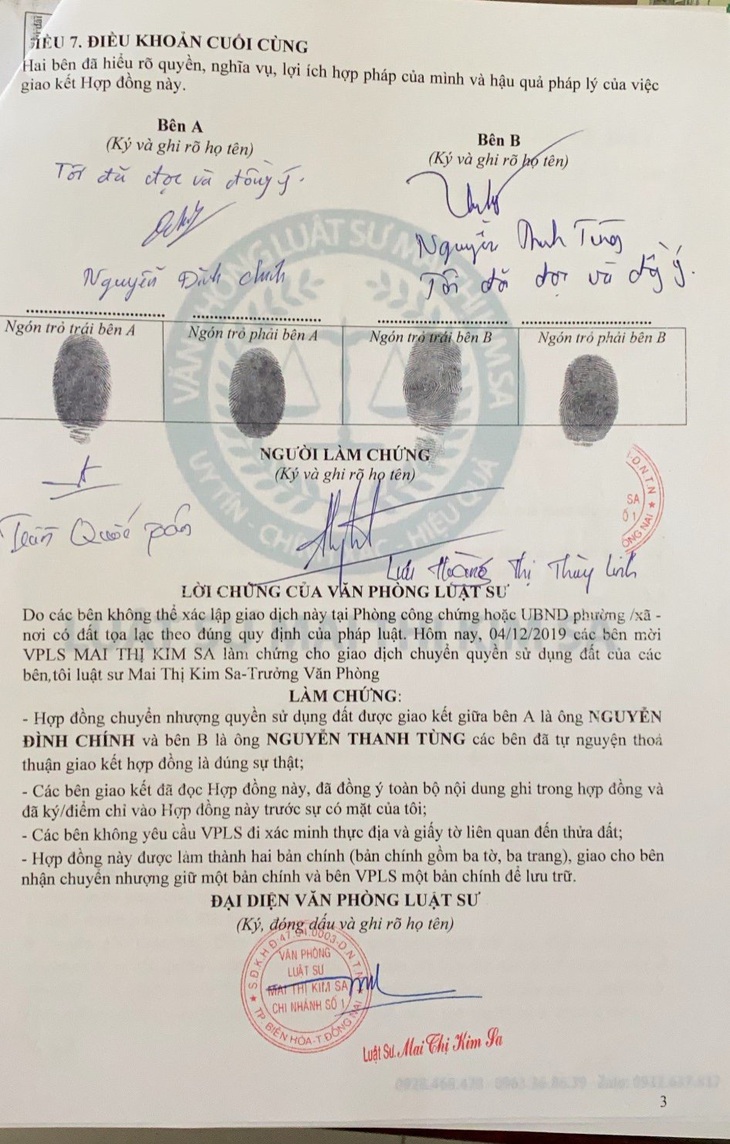 ĐIỀU 7. ĐIỀU KHOẢN CUỐI CÙNG
Hai bên đã hiểu rõ quyền, nghĩa vụ, lợi ích hợp pháp của mình và hậu quả pháp lý của việc
giao kết Hợp đồng này.
Bên A
(Ký và ghi rõ họ tên)
Tôi đã đọc và đồng ý.
Nguyễn Đình Chính
Bên B
(Ký và ghi rõ họ tên)
Nguyễn Thanh Tùng
Tôi đã đọc và đồng ý.
Ngón trỏ trái bên A
Ngón trỏ phải bên A
Ngón trỏ trái bên B
Ngón trỏ phải bên B
VĂN PHÒNG LUẬT SƯ MAI THỊ KIM SA
UY TÍN - CHÍNH XÁC - HIỆU QUẢ
NGƯỜI LÀM CHỨNG
(Ký và ghi rõ họ tên)
Trần Quốc
Lưu Hoàng Thị Thùy Linh
Đ.N.T.N
SA
Ố 1
ỒNG NAI
LỜI CHỨNG CỦA VĂN PHÒNG LUẬT SƯ
Do các bên không thể xác lập giao dịch này tại Phòng công chứng hoặc UBND phường /xã -
nơi có đất tọa lạc theo đúng quy định của pháp luật. Hôm nay, 04/12/2019 các bên mời
VPLS MAI THỊ KIM SA làm chứng cho giao dịch chuyển quyền sử dụng đất của các
bên,tôi luật sư Mai Thị Kim Sa-Trưởng Văn Phòng
LÀM CHỨNG:
- Hợp đồng chuyển nhượng quyền sử dụng đất được giao kết giữa bên A là ông NGUYỄN
ĐÌNH CHÍNH và bên B là ông NGUYỄN THANH TÙNG các bên đã tự nguyện thoả
thuận giao kết hợp đồng là đúng sự thật;
- Các bên giao kết đã đọc Hợp đồng này, đã đồng ý toàn bộ nội dung ghi trong hợp đồng và
đã ký/điểm chỉ vào Hợp đồng này trước sự có mặt của tôi;
- Các bên không yêu cầu VPLS đi xác minh thực địa và giấy tờ liên quan đến thửa đất;
- Hợp đồng này được làm thành hai bản chính (bản chính gồm ba tờ, ba trang), giao cho bên
nhận chuyển nhượng giữ một bản chính và bên VPLS một bản chính để lưu trữ.
ĐẠI DIỆN VĂN PHÒNG LUẬT SƯ
(Ký, đóng dấu và ghi rõ họ tên)
VĂN PHÒNG
LUẬT SƯ
MAI THỊ KIM SA
CHI NHÁNH SỐ 1
TP BIÊN HÒA-T ĐỒNG NAI
Luật Sư. Mai Thị Kim Sa
3